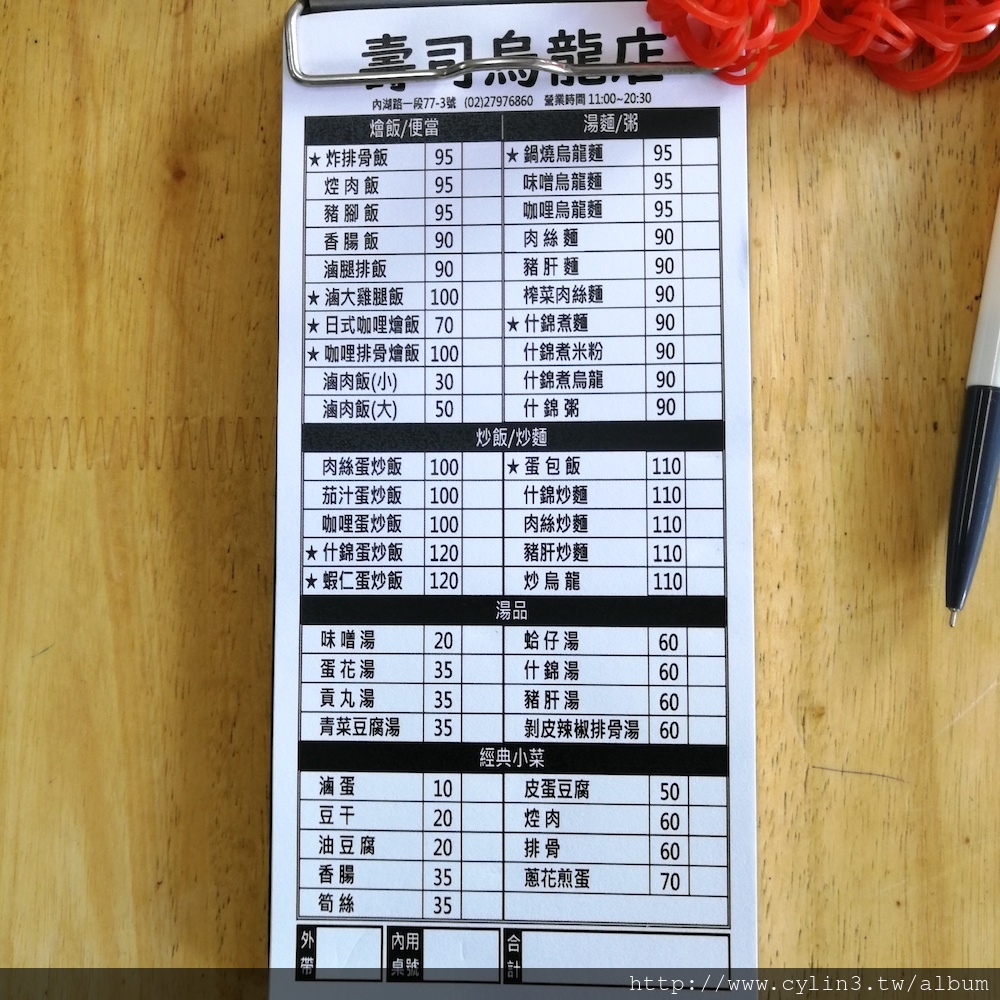 壽司烏龍店
內湖路一段77-3號 (02)27976860 營業時間 11:00~20:30
燴飯/便當 湯麵/粥
★炸排骨飯 95 ★鍋燒烏龍麵 95
焢肉飯 95 味噌烏龍麵 95
豬腳飯 95 咖哩烏龍麵 95
香腸飯 90 肉絲麵 90
滷腿排飯 90 豬肝麵 90
★滷大雞腿飯 100 榨菜肉絲麵 90
★日式咖哩燴飯 70 ★什錦煮麵 90
★咖哩排骨燴飯 100 什錦煮米粉 90
滷肉飯(小) 30 什錦煮烏龍 90
滷肉飯(大) 50 什錦粥 90
炒飯/炒麵
肉絲蛋炒飯 100 ★蛋包飯 110
茄汁蛋炒飯 100 什錦炒麵 110
咖哩蛋炒飯 100 肉絲炒麵 110
★什錦蛋炒飯 120 豬肝炒麵 110
★蝦仁蛋炒飯 120 炒烏龍 110
湯品
味噌湯 20 蛤仔湯 60
蛋花湯 35 什錦湯 60
貢丸湯 35 豬肝湯 60
青菜豆腐湯 35 剝皮辣椒排骨湯 60
經典小菜
滷蛋 10 皮蛋豆腐 50
豆干 20 焢肉 60
油豆腐 20 排骨 60
香腸 35 蔥花煎蛋 70
筍絲 35
外帶 內用桌號 合計
http://www.cylin3.tw/album